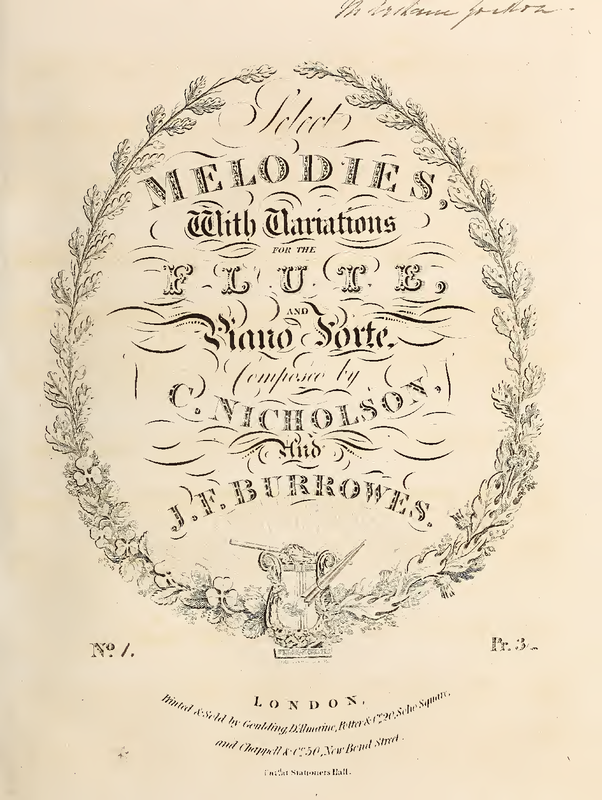 Select
MELODIES,
With Variations
FOR THE
FLUTE,
AND
Piano Forte.
Composed by
C. NICHOLSON,
And
J. F. BURROWES.
No 1.
Pr. 3/-
LONDON,
Printed & Sold by Goulding, D'Almaine, Potter & Co. 20, Soho Square,
and Chappell & Co. 50, New Bond Street.
Ent. at Stationers Hall.